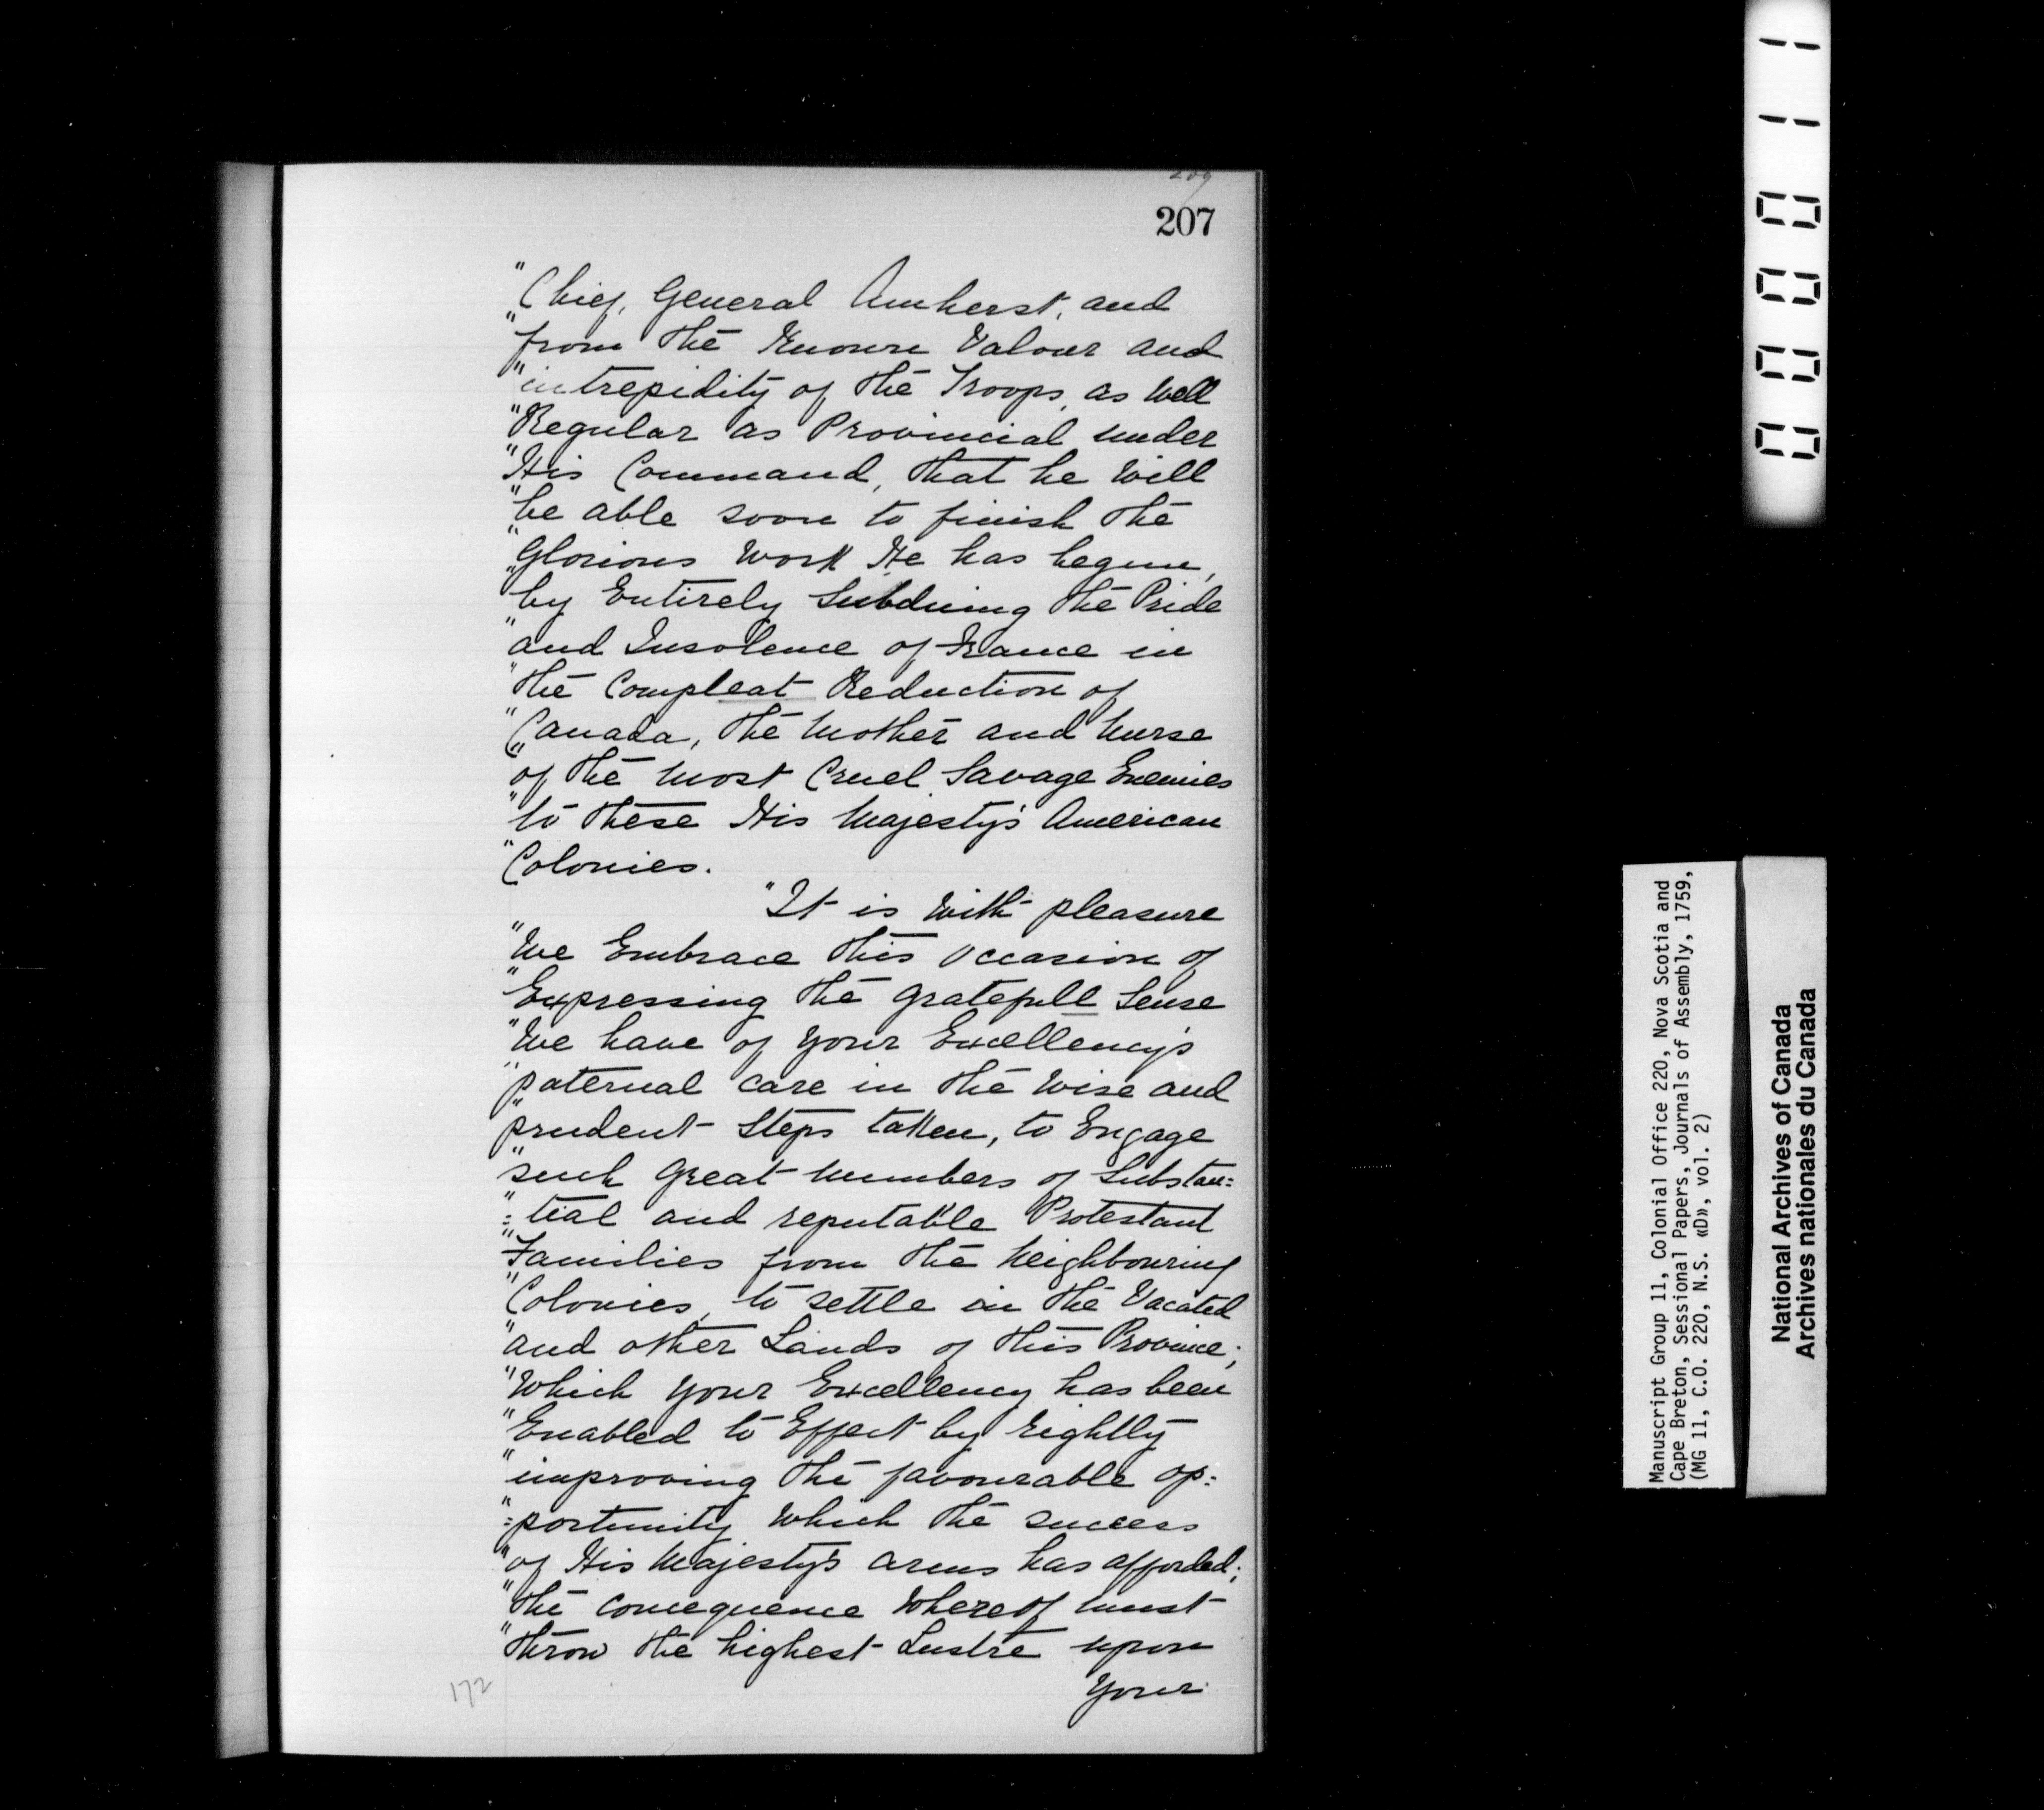 209
207
"Chief, General Amherst, and
"from the Known Valour and
"intrepidity of the Troops, as Well
"Regular as Provincial under
"His Command, that he Will
"be able soon to finish the
"Glorious Work He has begun,
"by Entirely Subduing the Pride
"and Insolence of France in
"the Compleat Reduction of
"Canada, the Mother and Nurse
"of the most Cruel Savage Enemies
"to these His Majesty's American
"Colonies.
"It is With pleasure
"We Embrace this Occasion of
"Expressing the gratefull Sense
"We have of Your Excellency's
"paternal Care in the Wise and
"prudent Steps taken, to Engage
"such great Numbers of Substan=
"=tial and reputable Protestant
"Families from the Neighbouring
"Colonies, to settle in the Vacated
"and other Lands of this Province;
"Which Your Excellency has been
"Enabled to Effect by rightly
"improving the favourable op=
"=portunity Which the success
"of His Majesty's arms has afforded;
"the Consequence Whereof must
"throw the highest Lustre upon
Your
172
00001 1
Manuscript Group 11, Colonial Office 220, Nova Scotia and
Cape Breton, Sessional Papers, Journals of Assembly, 1759,
(MG 11, C.O. 220, N.S. «D», vol. 2)
National Archives of Canada
Archives nationales du Canada